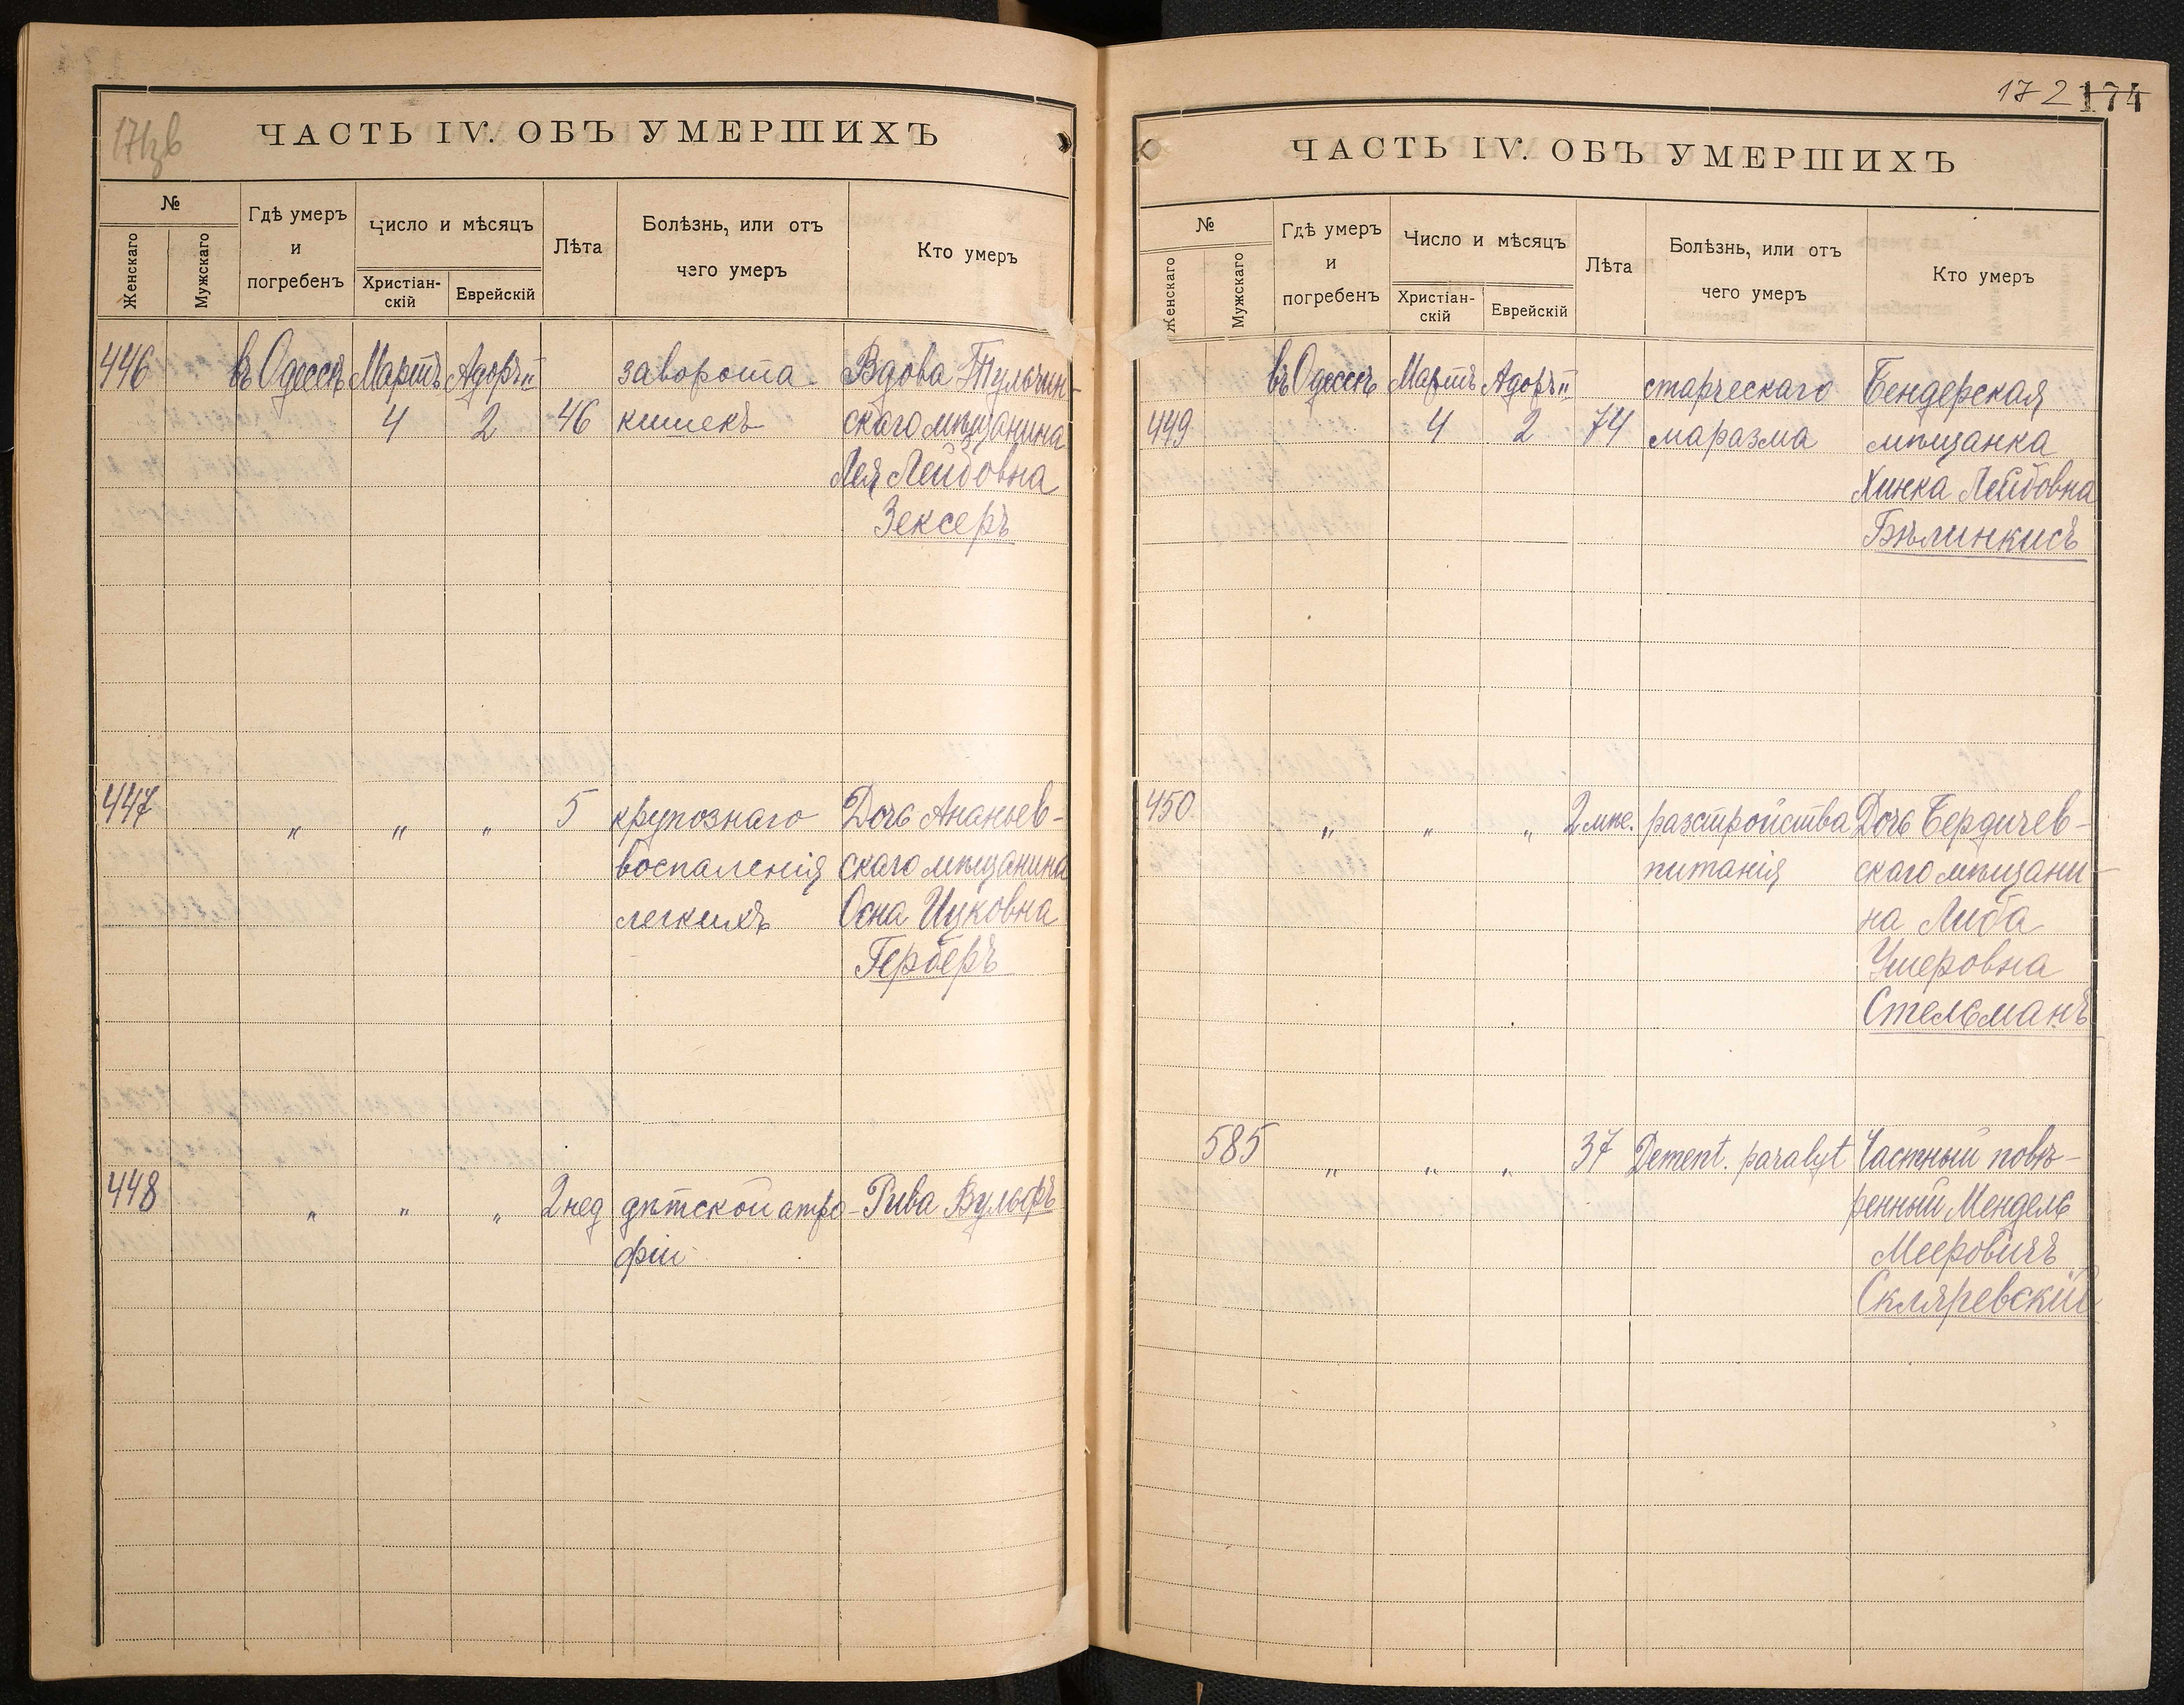 171зв
ЧАСТЬ IV. ОБЪ УМЕРШИХЪ
№
Женскаго
Мужскаго
Гдѣ умеръ
и
погребенъ
Число и мѣсяцъ
Христіан-
скій
Еврейскій
Лѣта
Болѣзнь, или отъ
чего умеръ
Кто умеръ
446 въ Одессѣ Мартъ Адоръ II заворота Вдова Тульчин-
4 2 46 кишекъ скаго мѣщанина
Лея Лейбовна
Зексеръ
447 " " " 5 крупознаго Дочь Ананьев-
воспаленія скаго мѣщанина
легкихъ Осна Ицковна
Герберъ
448 " " " 2 нед дѣтской атро- Рива Вульфъ
фіи
172 174
ЧАСТЬ IV. ОБЪ УМЕРШИХЪ
№
Женскаго
Мужскаго
Гдѣ умеръ
и
погребенъ
Число и мѣсяцъ
Христіан-
скій
Еврейскій
Лѣта
Болѣзнь, или отъ
чего умеръ
Кто умеръ
въ Одессѣ Мартъ Адоръ II старческаго Бендерская
449 4 2 74 маразма мѣщанка
Хинка Лейбовна
Бѣлинкисъ
450 " " " 2 мѣс. разстройства Дочь Бердичев-
питанія скаго мѣщани-
на Либа
Ушеровна
Стельманъ
585 " " " 37 Dement. paralyt Частный повѣ-
ренный Мендель
Мееровичъ
Скляревскій